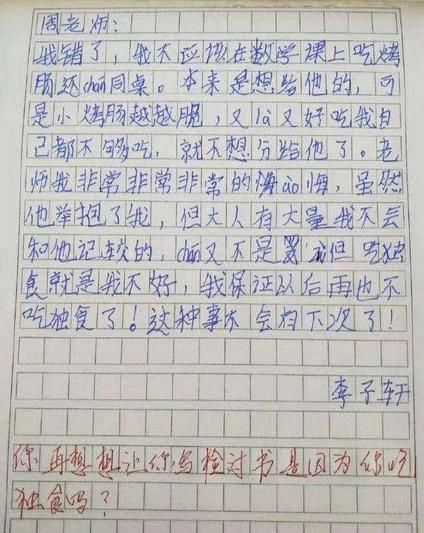 周老师：
我错了，我不应该在数学课上吃烤
肠还chán同桌。本来是想给他的，可
是小烤肠越越脆，又là又好吃我自
己都不够吃，就不想分给他了。老
师我非常非常非常的悔ào悔，虽然
他举抱了我，但大人有大量我不会
和他记较的，chán又不是罪 但吃独
食就是我不好，我保证以后再也不
吃独食了！这种事不会有下次了！
李子轩
你再想想让你写检讨书是因为你吃
独食吗？